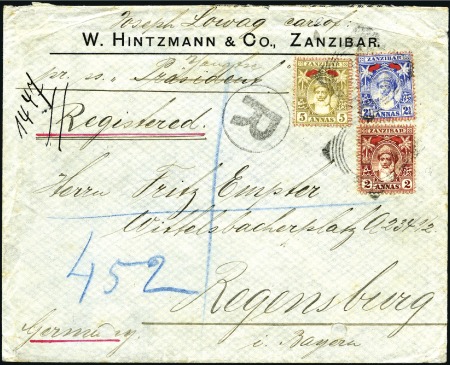 Joseph Lowag
W. HINTZMANN & CO., ZANZIBAR.
Präsident
1447
Registered.
R
ZANZIBAR
5 ANNAS 5
ZANZIBAR
2½ ANNAS 2½
ZANZIBAR
2 ANNAS 2
Herrn Fritz Empter
Wittelsbacherplatz A234/2
452
Regensburg
Germany.
i. Bayern